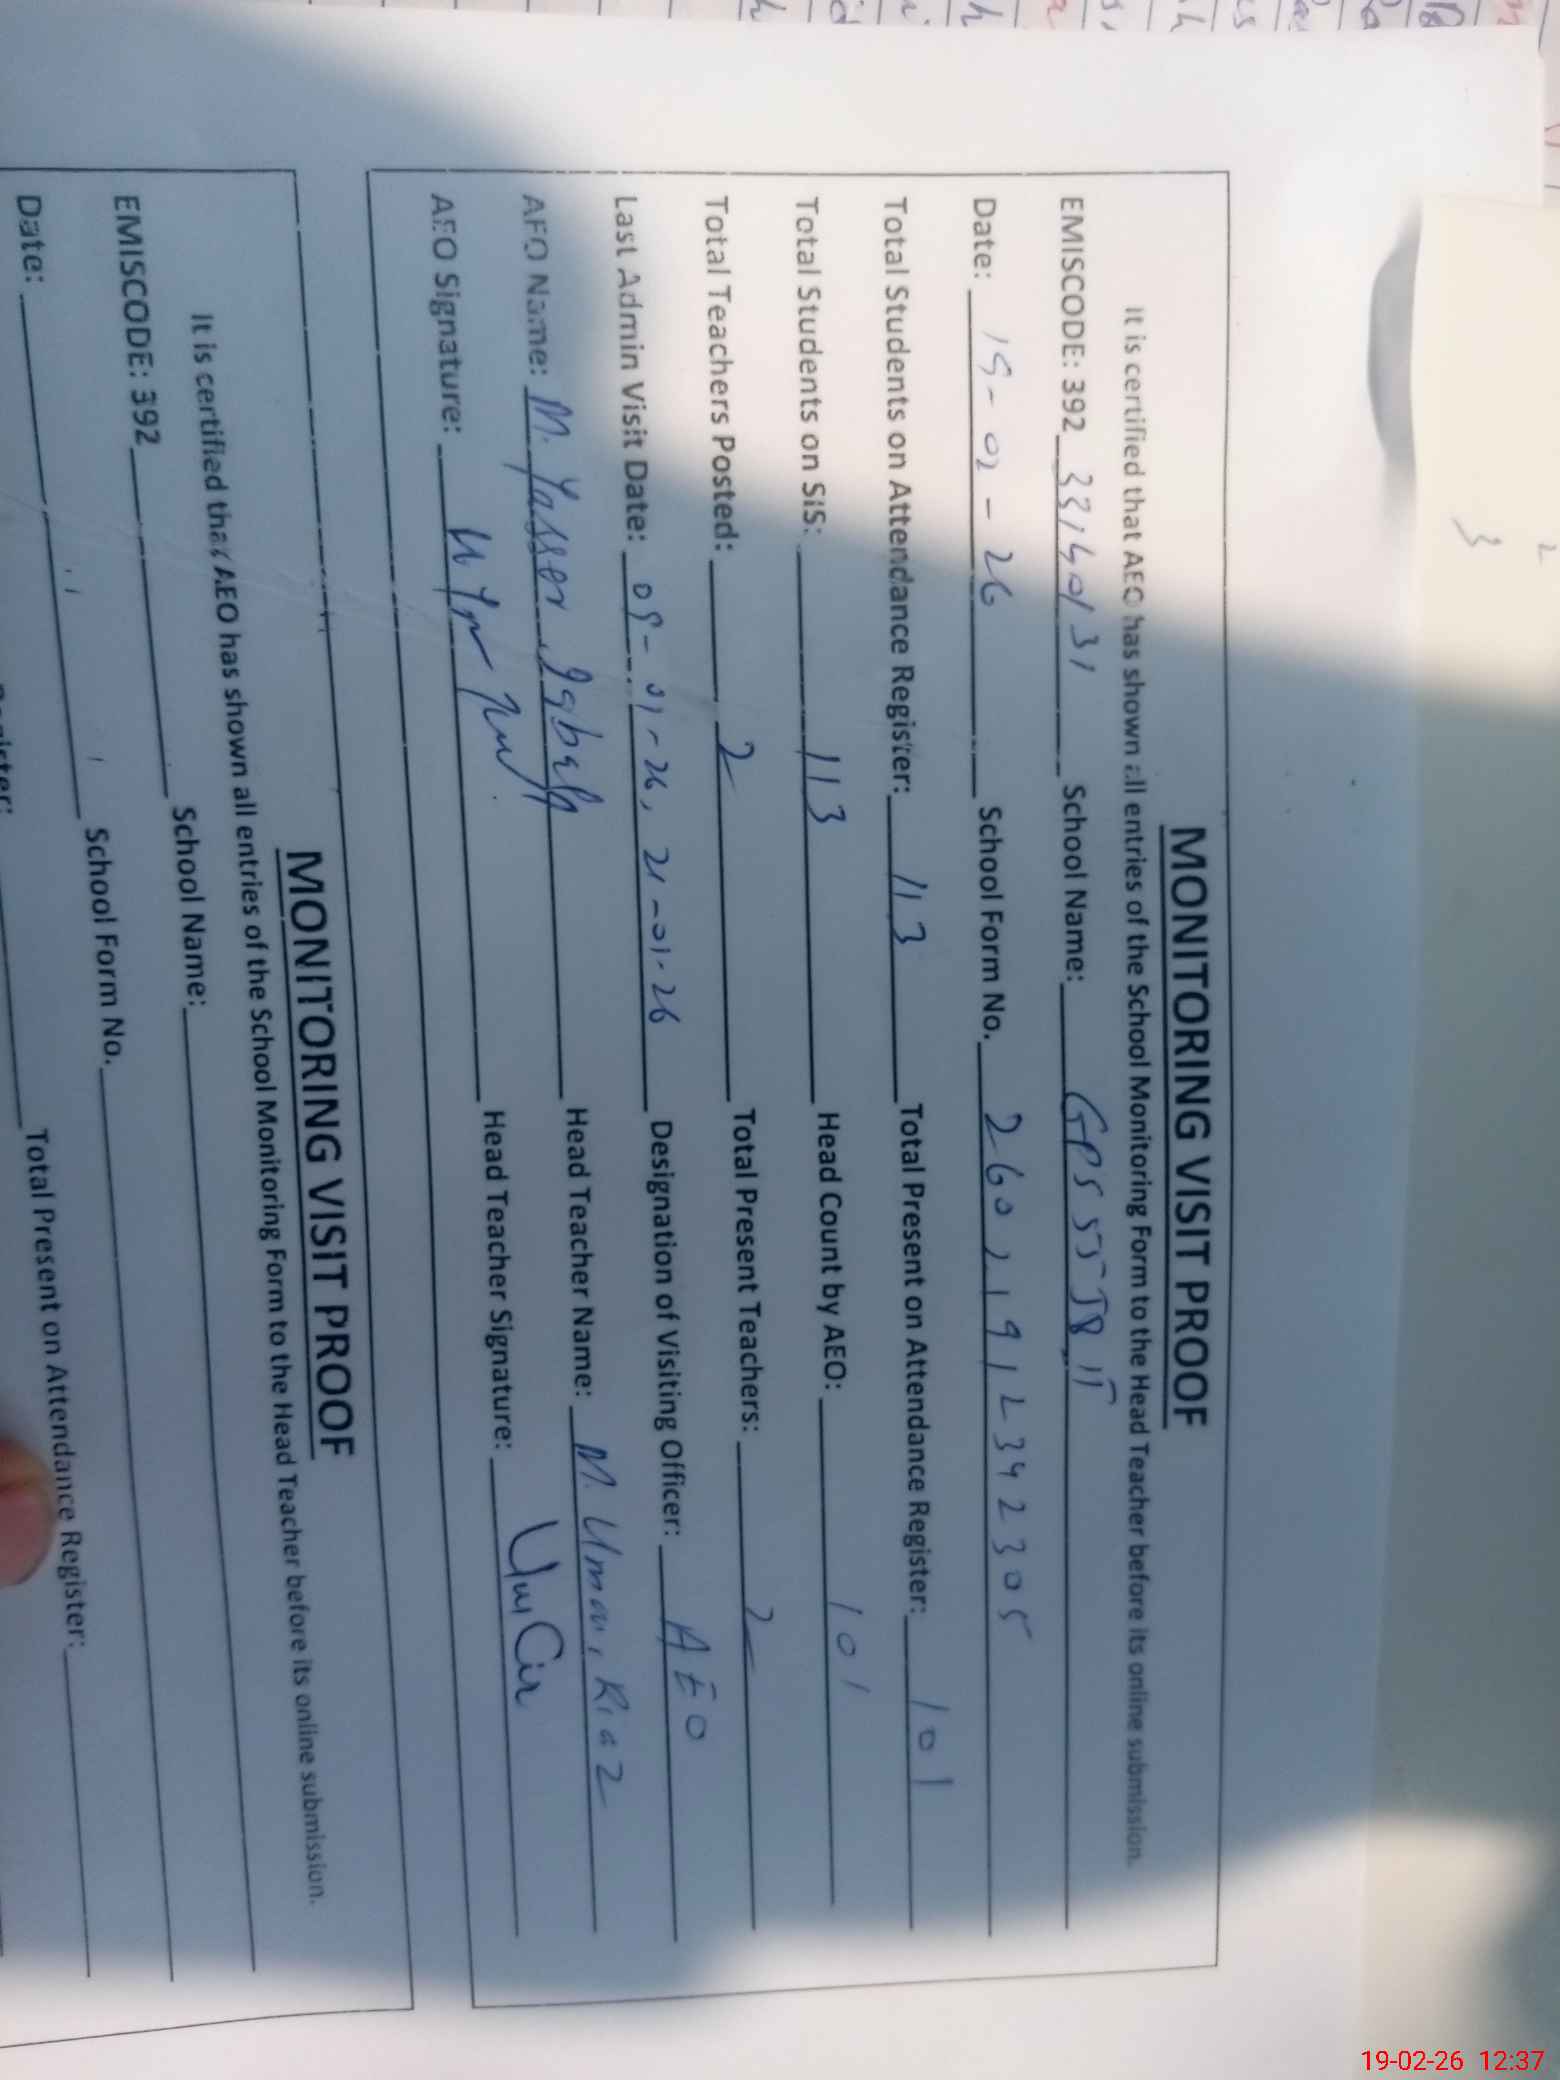 MONITORING VISIT PROOF
It is certified that AEO has shown all entries of the School Monitoring Form to the Head Teacher before its online submission.
EMISCODE: 392 School Name: GPS 55 JB
Date: 19-02-26 School Form No. 26021912342305
Total Students on Attendance Register: 113 Total Present on Attendance Register: 101
Total Students on SIS: 113 Head Count by AEO: 101
Total Teachers Posted: 2 Total Present Teachers: 2
Last Admin Visit Date: 09-01-26, 21-01-26 Designation of Visiting Officer: AEO
AEO Name: M. Yasser Iqbal Head Teacher Name: M. Umar Riaz
AEO Signature: Head Teacher Signature:
MONITORING VISIT PROOF
It is certified that AEO has shown all entries of the School Monitoring Form to the Head Teacher before its online submission.
EMISCODE: 392 School Name:
Date: School Form No.
Total Present on Attendance Register:
19-02-26 12:37